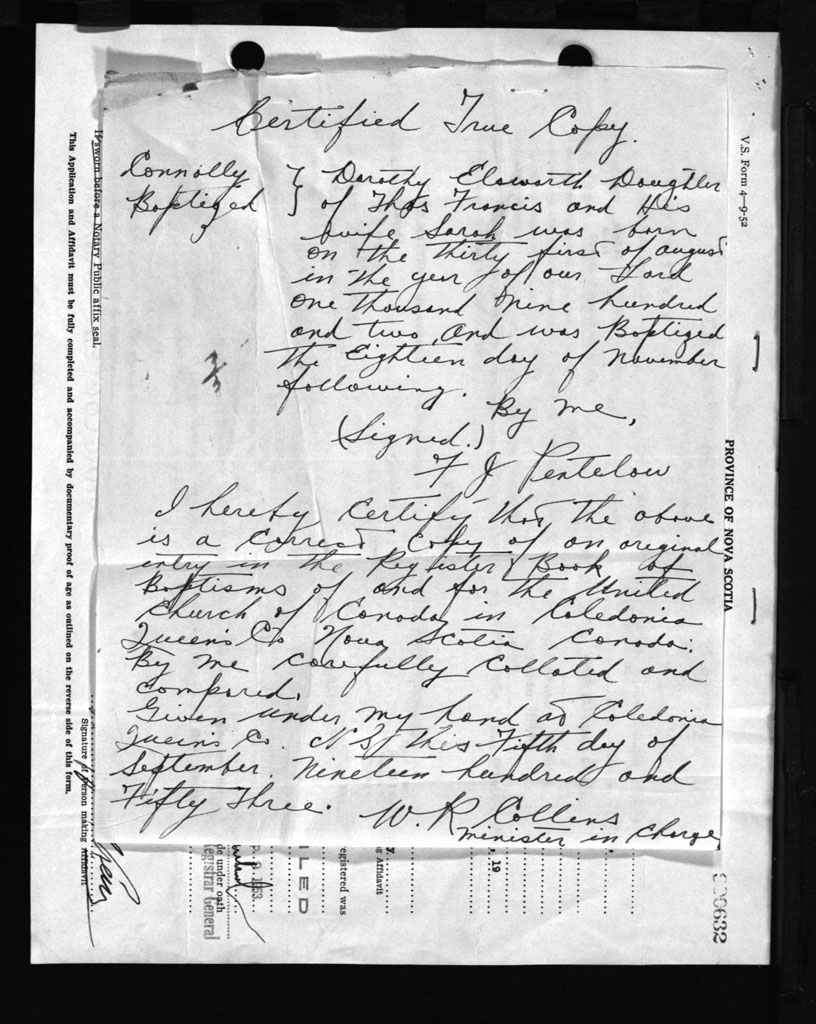 Certified True Copy.
Connolly } Dorothy Elsworth Daughter
Baptized } of Thos Francis and His
wife Sarah was born
on the thirty first of august
in the year of our Lord
one thousand nine hundred
and two, and was Baptized
the Eighteen day of November
following.
By me,
(Signed.)
F J Pentelow
I hereby certify that the above
is a correct copy of an original
entry in the Register Book of
Baptisms of and for the United
Church of Canada, in Caledonia
Queens Co Nova Scotia Canada.
By me carefully Collated and
compared.
Given under my hand at Caledonia
Queens Co. N S, this Fifth day of
September. Nineteen hundred and
Fifty Three.
W. R Collins
minister in charge,
V.S. Form 4—9-52
PROVINCE OF NOVA SCOTIA
, 19
egistered was
ILED
1953
de under oath
egistrar General
g Affidavit
Signature of person making Affidavit
If sworn before a Notary Public affix seal.
This Application and Affidavit must be fully completed and accompanied by documentary proof of age as outlined on the reverse side of this form.